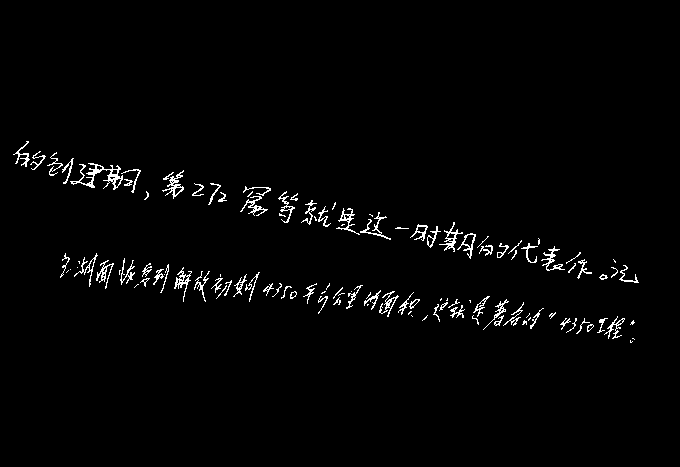 的创建期，第272窟等就是这一时期的代表作。记
湖面恢复到解放初期4350平方公里的面积，这就是著名的“4350工程”。